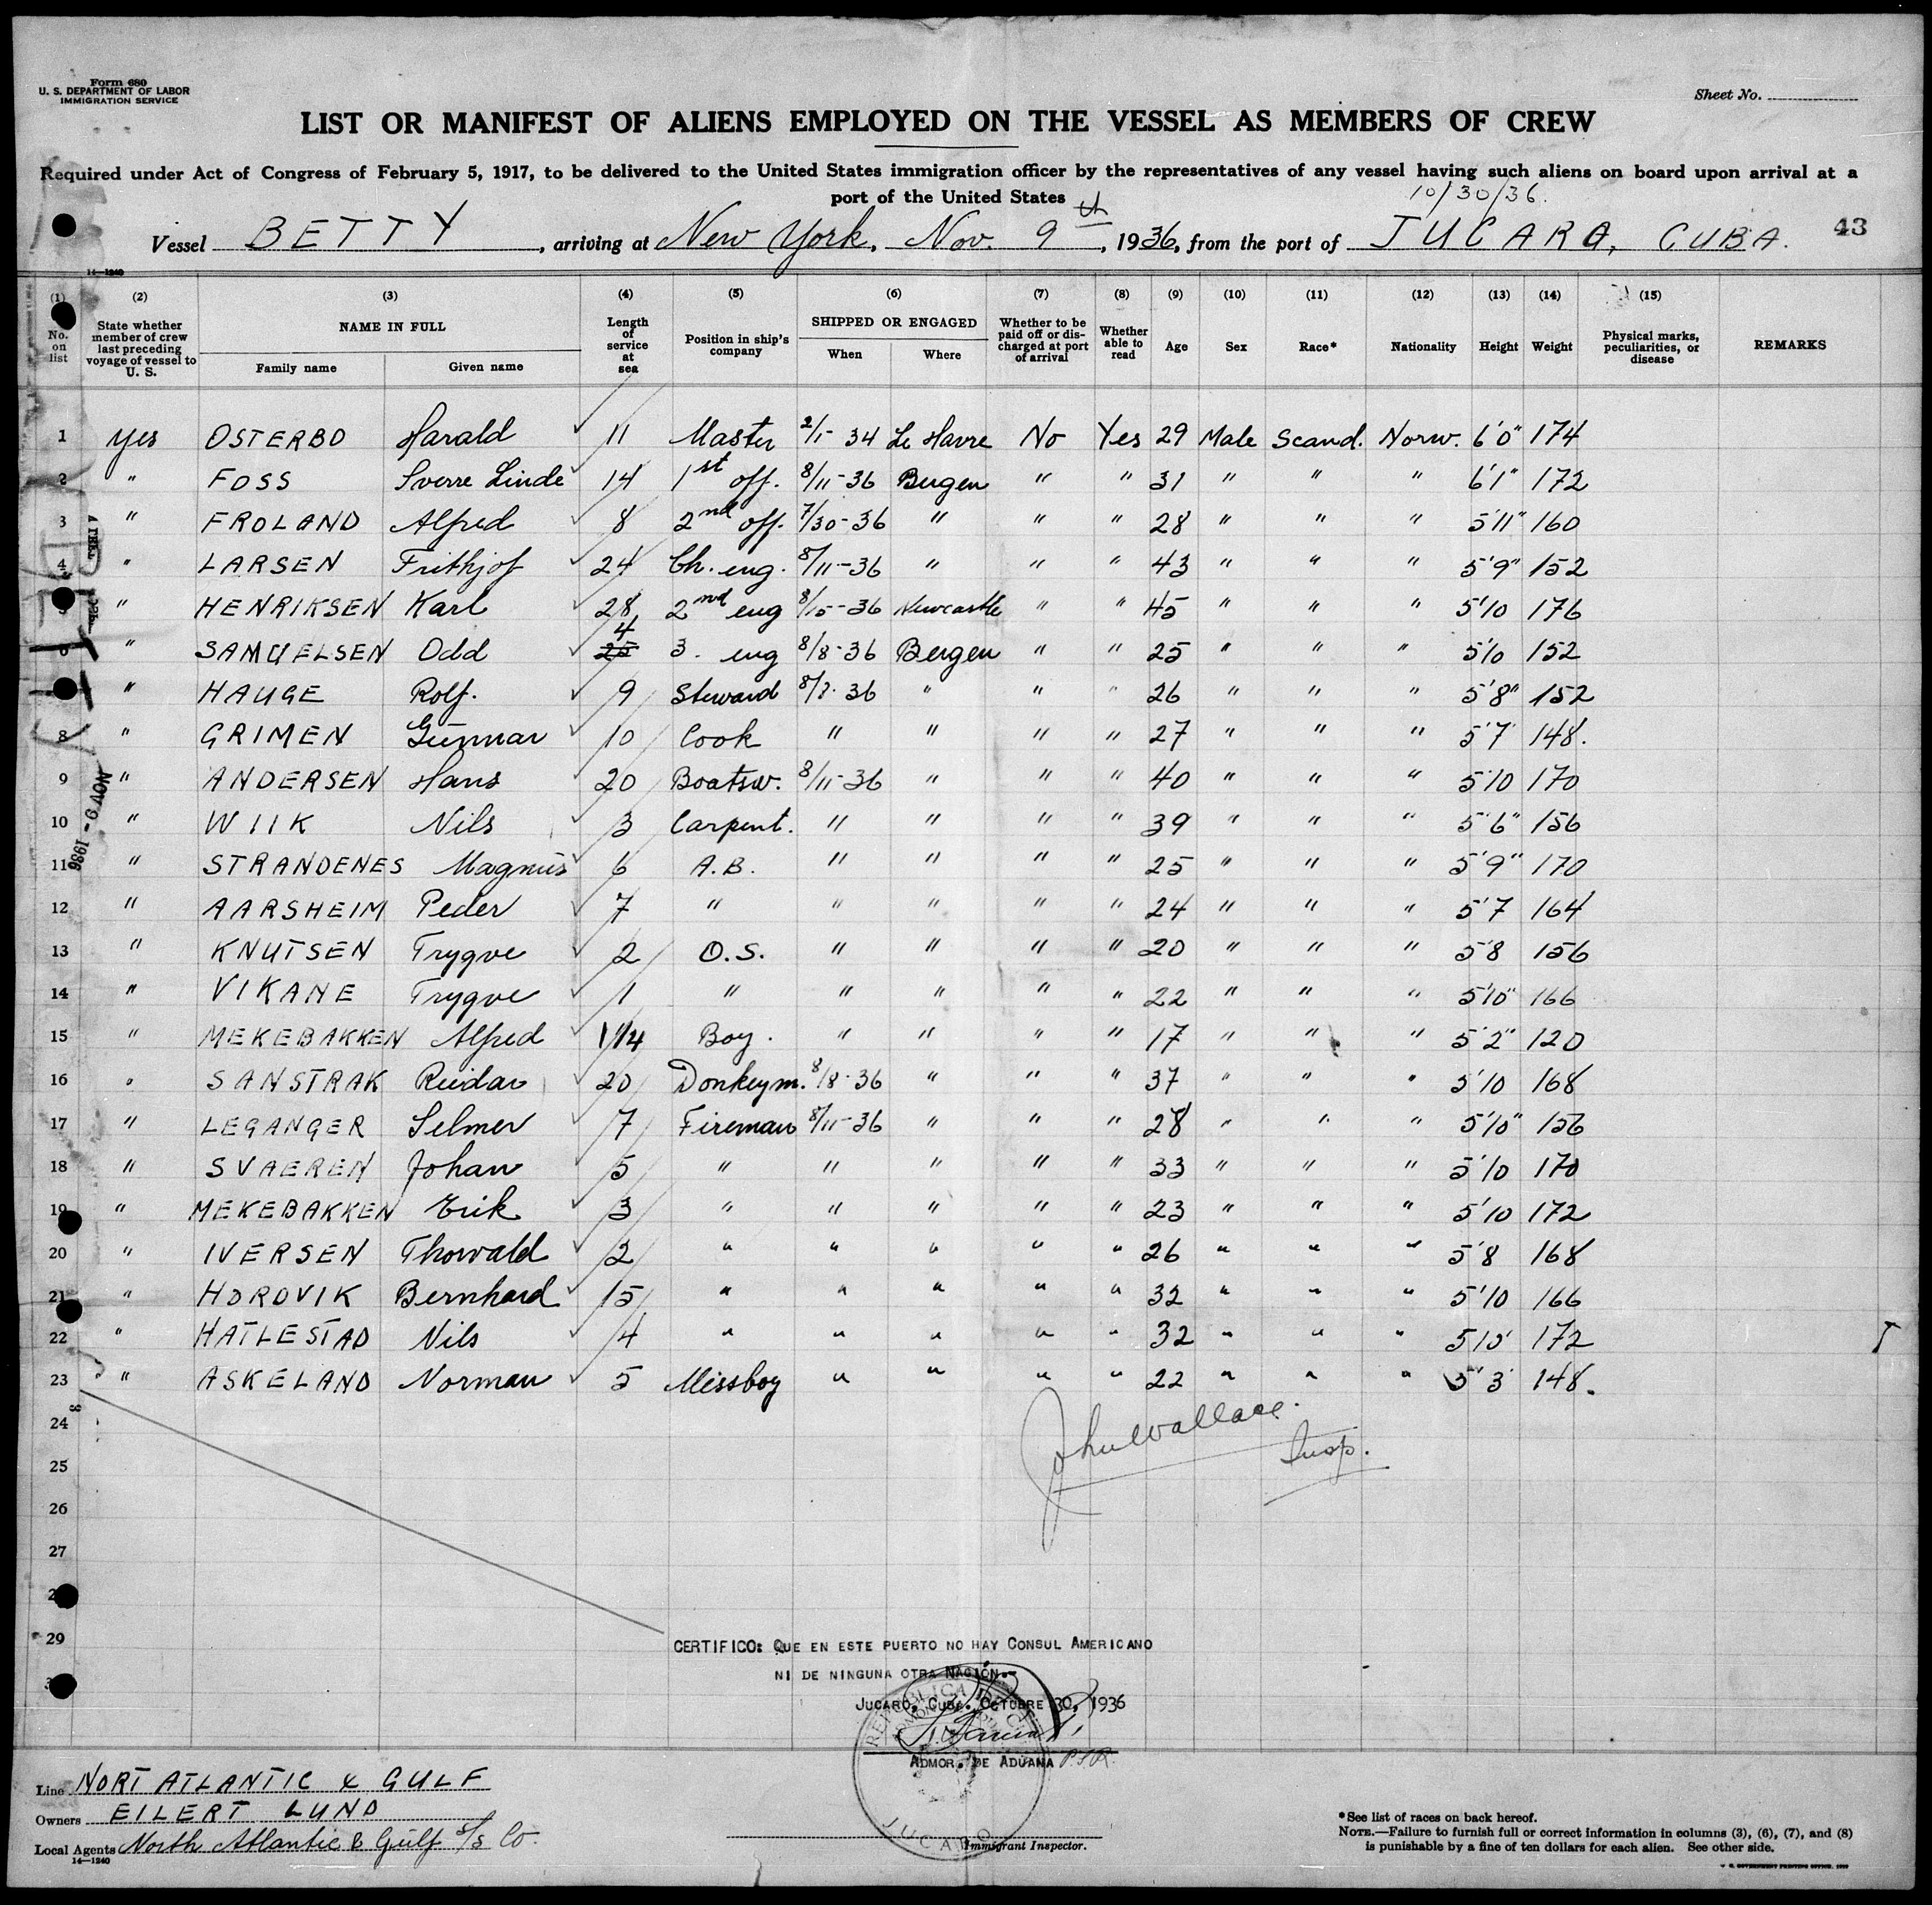 Form 680
U. S. DEPARTMENT OF LABOR
IMMIGRATION SERVICE
Sheet No.
LIST OR MANIFEST OF ALIENS EMPLOYED ON THE VESSEL AS MEMBERS OF CREW
Required under Act of Congress of February 5, 1917, to be delivered to the United States immigration officer by the representatives of any vessel having such aliens on board upon arrival at a
port of the United States
10/30/36.
Vessel BETTY, arriving at New York, Nov. 9th, 1936, from the port of JUCARO, CUBA. 43
14—1240
(1) (2) (3) (4) (5) (6) (7) (8) (9) (10) (11) (12) (13) (14) (15)
No. on list State whether member of crew last preceding voyage of vessel to U. S. NAME IN FULL Family name Given name Length of service at sea Position in ship's company SHIPPED OR ENGAGED When Where Whether to be paid off or discharged at port of arrival Whether able to read Age Sex Race* Nationality Height Weight Physical marks, peculiarities, or disease REMARKS
1 Yes OSTERBO Harald 11 Master 2/1- 34 Le Havre No Yes 29 Male Scand. Norw. 6'0" 174
2 " FOSS Sverre Linde 14 1st off. 8/11-36 Bergen " " 31 " " " 6'1" 172
3 " FROLAND Alfred 8 2nd off. 7/30-36 " " " 28 " " " 5'11" 160
4 " LARSEN Frithjof 24 Ch. eng. 8/11-36 " " " 43 " " " 5'9" 152
5 " HENRIKSEN Karl 28 2nd eng 8/15-36 Newcastle " " 45 " " " 5'10 176
6 " SAMUELSEN Odd 4 25 3. eng 8/8-36 Bergen " " 25 " " " 5'10 152
" HAUGE Rolf. 9 Steward 8/8-36 " " " 26 " " " 5'8" 152
8 " GRIMEN Gunnar 10 Cook " " " " 27 " " " 5'7 148.
9 " ANDERSEN Hans 20 Boatsw. 8/11-36 " " " 40 " " " 5'10 170
10 " WIIK Nils 3 Carpent. " " " " 39 " " " 5'6" 156
11 " STRANDENES Magnus 6 A.B. " " " " 25 " " " 5'9" 170
12 " AARSHEIM Peder 7 " " " " " 24 " " " 5'7 164
13 " KNUTSEN Trygve 2 O.S. " " " " 20 " " " 5'8 156
14 " VIKANE Trygve 1 " " " " " 22 " " " 5'10" 166
15 " MEKEBAKKEN Alfred 1 1/4 Boy. " " " " 17 " " " 5'2" 120
16 " SANSTRAK Reidar 20 Donkeym. 8/8-36 " " " 37 " " " 5'10 168
17 " LEGANGER Selmer 7 Fireman 8/11-36 " " " 28 " " " 5'10" 156
18 " SVAEREN Johan 5 " " " " " 33 " " " 5'10 170
19 " MEKEBAKKEN Erik 3 " " " " " 23 " " " 5'10 172
20 " IVERSEN Thorvald 2 " " " " " 26 " " " 5'8 168
21 " HOROVIK Bernhard 15 " " " " " 32 " " " 5'10 166
22 " HATLESTAD Nils 4 " " " " " 32 " " " 5'10 172
23 " ASKELAND Norman 5 Messboy " " " " 22 " " " 5'3 148.
NOV 9 - 1936
24
John Wallace.
25
Insp.
26
27
29
CERTIFICO: QUE EN ESTE PUERTO NO HAY CONSUL AMERICANO
NI DE NINGUNA OTRA NACION.-
JUCARO, CUBA. OCTUBRE 30, 1936
ADMOR. DE ADUANA P.S.R.
REPUBLICA DE
JUCARO
Line NORT ATLANTIC & GULF
Owners EILERT LUND
Local Agents North Atlantic & Gulf S/S Co.
14—1240
Immigrant Inspector.
*See list of races on back hereof.
NOTE.—Failure to furnish full or correct information in columns (3), (6), (7), and (8)
is punishable by a fine of ten dollars for each alien. See other side.